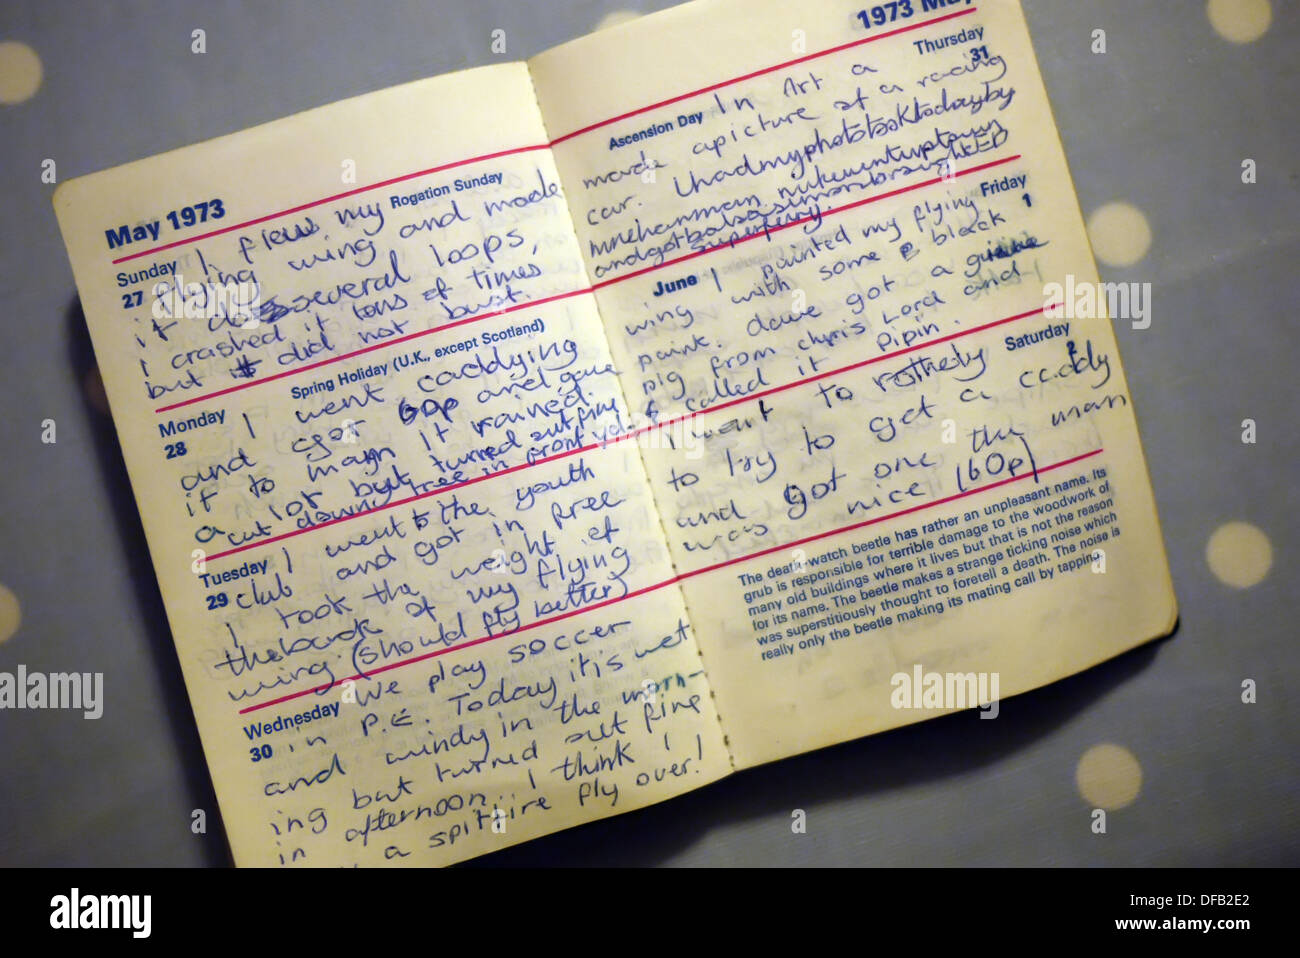 May 1973
Rogation Sunday
Sunday
27
I flew my
flying wing and made
it do several loops,
I crashed it tons of times
but it did not bust.
Spring Holiday (U.K., except Scotland)
Monday
28
I went caddying
and got 60p and gave
it to mam it rained
a lot but turned out fine
cut down tree in front yd.
Tuesday
29
I went to the youth
club and got in free
I took the weight of
the back of my flying
wing. (should fly better)
Wednesday
30
We play soccer
in P.E. Today it is wet
and windy in the morn-
ing but turned out fine
in afternoon. I think I
a spitfire fly over!
1973 May
Thursday
31
Ascension Day
In Art a
made a picture of a racing
car. I had my photo took today by
mr hearmam. mike went up town
and got balsa simon brought
superferry.
Friday
1
June
I painted my flying
wing with some black
paint. dave got a guine
pig from chris Lord and
called it Pipin.
Saturday
2
I went to rothely
to try to get a caddy
and got one the man
was nice (60p)
The death-watch beetle has rather an unpleasant name. Its
grub is responsible for terrible damage to the woodwork of
many old buildings where it lives but that is not the reason
for its name. The beetle makes a strange ticking noise which
was superstitiously thought to foretell a death. The noise is
really only the beetle making its mating call by tapping.
a
alamy
Image ID: DFB2E2
www.alamy.com